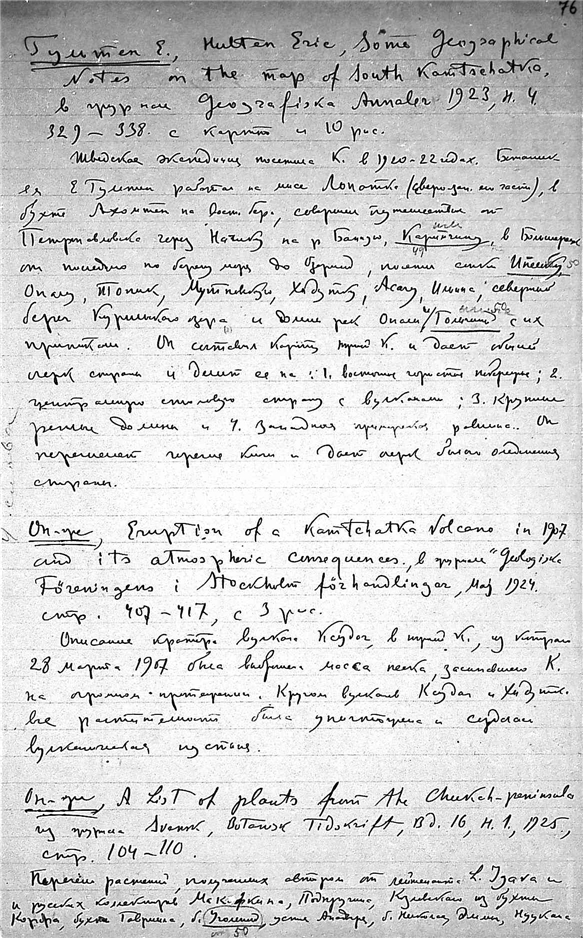 76
Гультен Е., Hulten Eric, Some Geographical
Notes on the map of South Kamtschatka,
в журнале Geografiska Annaler 1923, H. 4.
329–338. с картой и 10 рис.
Шведская экспедиция посетила К. в 1920-22 годах. Ботаник
ея Е Гультен работал на мысе Лопатка в
бухте Ахомтен на Вост. бер., совершил путешествие от
Петропавловска через Начику на р Банную, Карымчину, в Большерецк
от последнего по берегу моря до Озерной, посетил сопки Ипелька, 50
Опалу, Мутновскую, Ходутку, Асачу, Ильина, северный
берег Курильского озера и долины рек Опалы Голыгиной с их
притоками. Он составил карту южной К. и дает общий
очерк страны и делит ее на: 1. восточное гористое побережье; 2.
центральную столовую страну с вулканами; 3. Крупные
речные долины и 4. Западная приморская равнина. Он
перечисляет горячие ключи и дает очерк былого оледенения
страны.
Он-же, Eruption of a Kamtchatka Volcano in 1907
and its atmospheric consequences., в журнале "Geologiska
Föreningens i Stockholm förhandlingar, Maj 1924.
стр. 407–417, с 3 рис.
Описание кратера вулкана Ксудач, в южной К., из которого
28 марта 1907 была выброшена масса песка, засыпавшего К.
на огромном протяжении. Кругом вулканов Ксудач и Ходутк.
вся растительность была уничтожена и создалась
вулканическая пустыня.
Он-же, A List of plants from the Chukch-peninsula
из журнала Svensk, Botanisk Tidskrift, Bd. 16, H. 1, 1925,
стр. 104–110.
Перечень растений, полученных автором от лейтенанта
и русских коллекторов Подпругина, из бухты
Корфа, бухты Гавриила, б. Угольной, устье Анадыря, б.
50